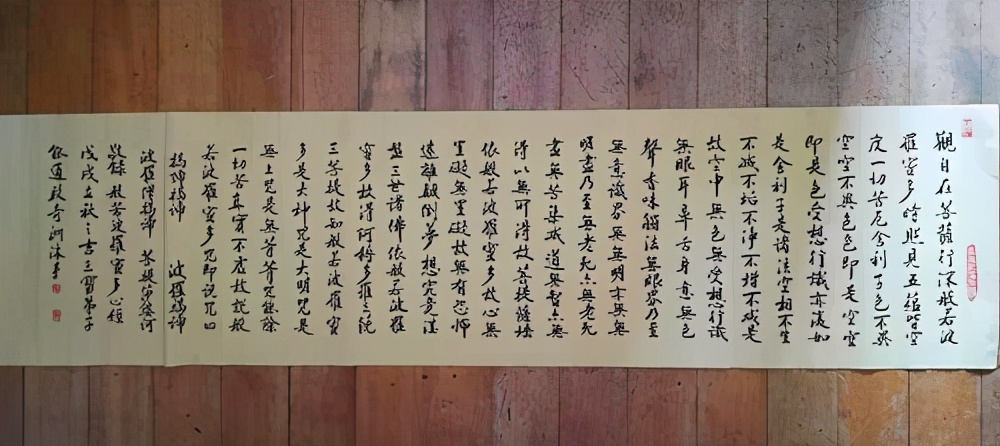 觀自在菩薩行深般若波
羅蜜多時照見五蘊皆空
度一切苦厄舍利子色不異
空空不異色色即是空空
即是色受想行識亦復如
是舍利子是諸法空相不生
不滅不垢不淨不增不減是
故空中無色無受想行識
無眼耳鼻舌身意無色
聲香味觸法無眼界乃至
無意識界無無明亦無無
明盡乃至無老死亦無老死
盡無苦集滅道無智亦無
得以無所得故菩提薩埵
依般若波羅蜜多故心無
罣礙無罣礙故無有恐怖
遠離顛倒夢想究竟涅
槃三世諸佛依般若波羅
蜜多故得阿耨多羅三藐
三菩提故知般若波羅蜜
多是大神咒是大明咒是
無上咒是無等等咒能除
一切苦真實不虛故說般
若波羅蜜多咒即說咒曰
揭諦揭諦 波羅揭諦
波羅僧揭諦 菩提薩婆訶
敬錄般若波羅蜜多心經
戊戌立秋之吉三寶弟子